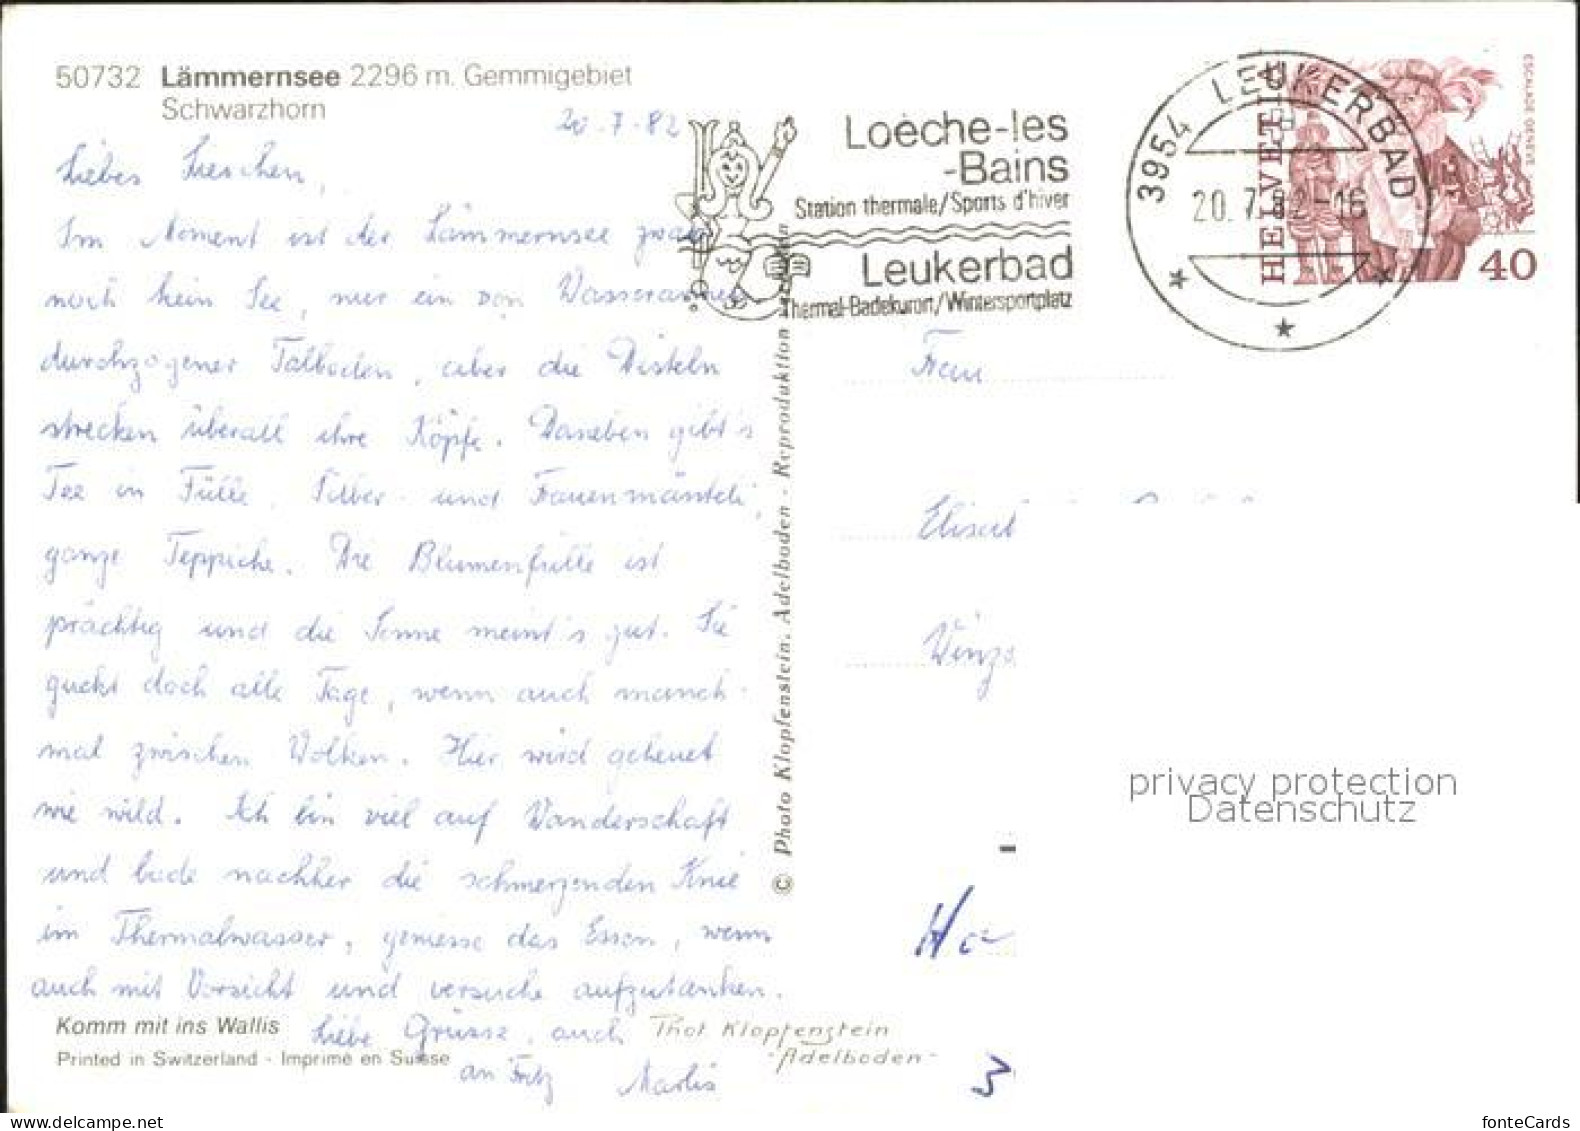 50732 Lämmernsee 2296 m. Gemmigebiet
Schwarzhorn
20.7.82
Liebes Lieschen,
Im Moment ist der Lämmernsee zwar
noch kein See, nur ein von Wasserarmen
durchzogener Talboden, aber die Disteln
strecken überall ihre Köpfe. Daneben gibt's
Tee in Fülle, Silber- und Frauenmänteli,
ganze Teppiche. Die Blumenfülle ist
prächtig und die Sonne meint's gut. Sie
guckt doch alle Tage, wenn auch manch-
mal zwischen Wolken. Hier wird geheuet
wie wild. Ich bin viel auf Wanderschaft
und bade nachher die schmerzenden Knie
im Thermalwasser, geniesse das Essen, wenn
auch mit Vorsicht und versuche aufzutanken.
Liebe Grüsse, auch
an Fritz Marlis
Komm mit ins Wallis
Printed in Switzerland - Imprimé en Suisse
Phot Klopfenstein
-Adelboden-
© Photo Klopfenstein, Adelboden - Reproduktion
Loèche-les
-Bains
Station thermale/Sports d'hiver
Leukerbad
Thermal-Badekurort/Wintersportplatz
3954 LEUKERBAD
20.7.82-16
HELVETIA
ESCALADE GENÈVE
40
Frau
3
privacy protection
Datenschutz
fonteCards